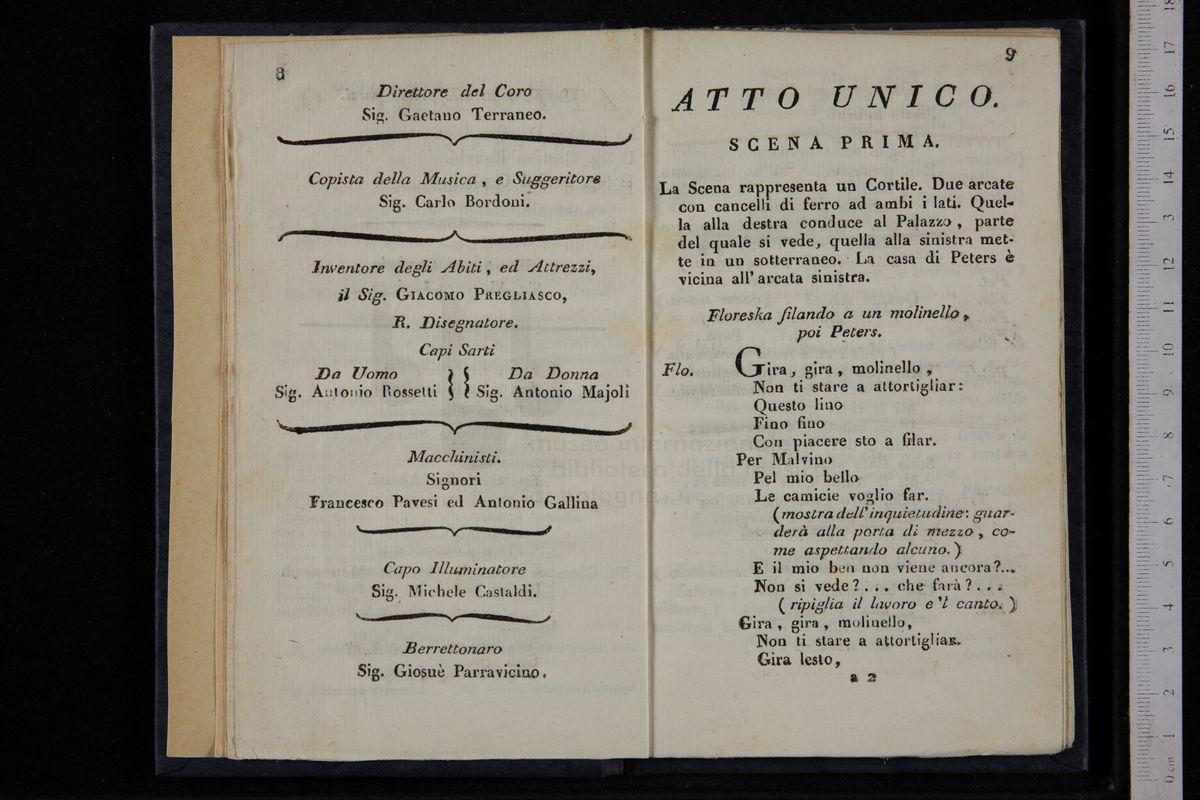 8
Direttore del Coro
Sig. Gaetano Terraneo.
Copista della Musica, e Suggeritore
Sig. Carlo Bordoni.
Inventore degli Abiti, ed Attrezzi,
il Sig. GIACOMO PREGLIASCO,
R. Disegnatore.
Capi Sarti
Da Uomo } { Da Donna
Sig. Antonio Rossetti } { Sig. Antonio Majoli
Macchinisti.
Signori
Francesco Pavesi ed Antonio Gallina
Capo Illuminatore
Sig. Michele Castaldi.
Berrettonaro
Sig. Giosuè Parravicino.
9
ATTO UNICO.
SCENA PRIMA.
La Scena rappresenta un Cortile. Due arcate
con cancelli di ferro ad ambi i lati. Quel-
la alla destra conduce al Palazzo, parte
del quale si vede, quella alla sinistra met-
te in un sotterraneo. La casa di Peters è
vicina all' arcata sinistra.
Floreska filando a un molinello,
poi Peters.
Flo. Gira, gira, molinello,
Non ti stare a attortigliar:
Questo lino
Fino fino
Con piacere sto a filar.
Per Malvino
Pel mio bello
Le camicie voglio far.
(mostra dell' inquietudine: guar-
derà alla porta di mezzo, co-
me aspettando alcuno.)
E il mio ben non viene ancora?...
Non si vede?... che farà?...
(ripiglia il lavoro e 'l canto.)
Gira, gira, molinello,
Non ti stare a attortigliar.
Gira lesto,
a 2
museo internazionale
e biblioteca della
bologna
0 cm 1 2 3 4 5 6 7 8 9 10 11 12 13 14 15 16 17 18